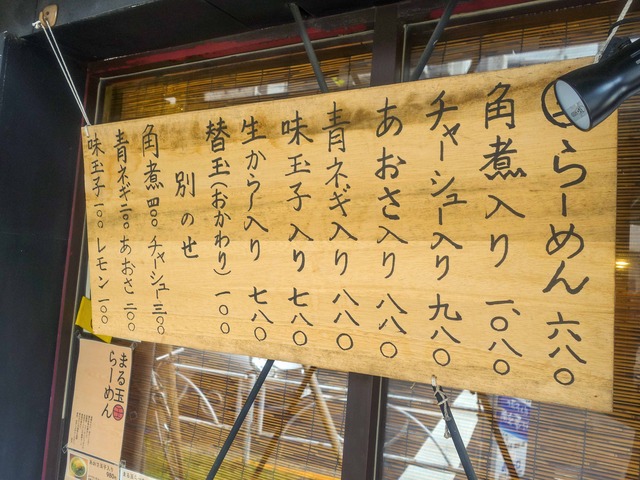 玉らーめん 六八〇
角煮入り 一、〇八〇
チャーシュー入り 九八〇
あおさ入り 八八〇
青ネギ入り 八八〇
味玉子入り 七八〇
生から〜入り 七八〇
替玉(おかわり) 一〇〇
別のせ
角煮 四〇〇 チャーシュー 三〇〇
青ネギ 二〇〇 あおさ 二〇〇
味玉子 一〇〇 レモン 一〇〇
まる玉
らーめん